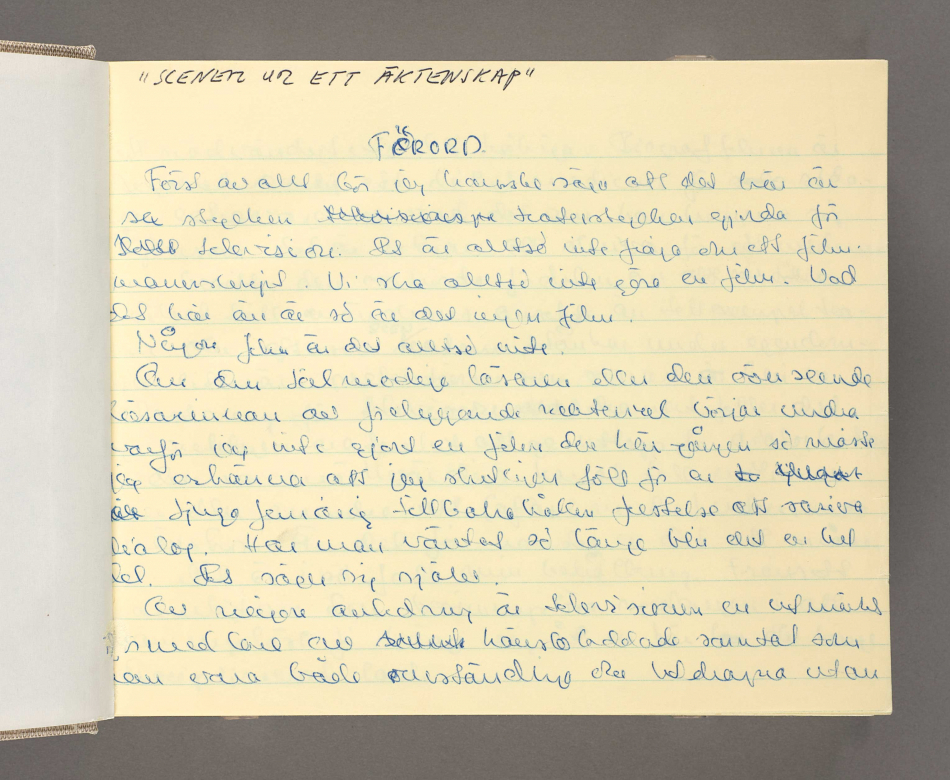 "SCENER UR ETT ÄKTENSKAP"
FÖRORD
Först av allt bör jag kanske säga att det här är
sex stycken teaterstycken gjorda för
television. Det är alltså inte fråga om ett film-
manuskript. Vi ska alltså inte göra en film. Vad
det här än är så är det ingen film.
Någon film är det alltså inte.
Om den tålmodige läsaren eller den överseende
läsarinnan av föreliggande material börjar undra
varför jag inte gjort en film den här gången så måste
jag erkänna att jag slutligen föll för en
tjugofemårig tillbakahållen frestelse att skriva
dialog. Har man väntat så länge blir det en hel
del. Det säger sig självt.
Av någon anledning är televisionen en utmärkt
smedlare av känsloladdade samtal som
kan vara både omständliga och utdragna utan